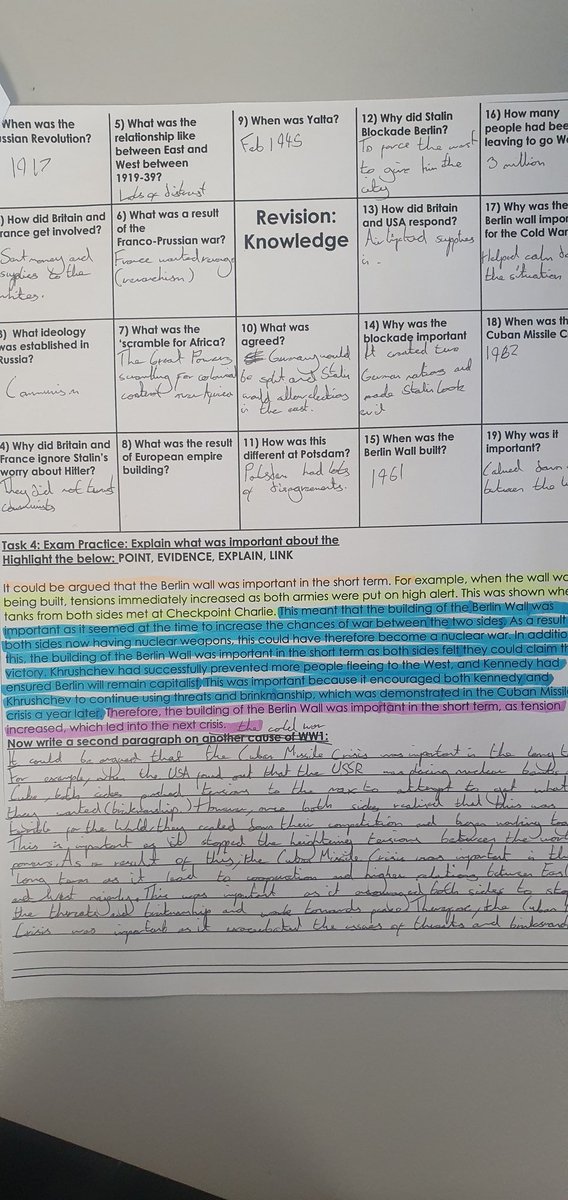 When was the
ssian Revolution?
1917
5) What was the
relationship like
between East and
West between
1919-39?
Lots of distrust
9) When was Yalta?
Feb 1945
12) Why did Stalin
Blockade Berlin?
To force the west
to give him the
city
16) How many
people had bee
leaving to go W
3 million
) How did Britain and
rance get involved?
Sent money and
supplies to the
whites.
6) What was a result
of the
Franco-Prussian war?
France wanted revenge
(revanchism)
Revision:
Knowledge
13) How did Britain
and USA respond?
Airlifted supplies
in.
17) Why was the
Berlin wall impor
for the Cold War
Helped calm do
the situation
) What ideology
was established in
Russia?
Communism
7) What was the
'scramble for Africa?
The Great Powers
scrambling for colonial
control over Africa
10) What was
agreed?
Germany would
be split and Stalin
would allow elections
in the east.
14) Why was the
blockade important
It created two
German nations and
made Stalin look
evil
18) When was th
Cuban Missile C
1962
4) Why did Britain and
France ignore Stalin's
worry about Hitler?
They did not trust
communists
8) What was the result
of European empire
building?
11) How was this
different at Potsdam?
Potsdam had lots
of disagreements.
15) When was the
Berlin Wall built?
1961
19) Why was it
important?
Calmed down
between the
Task 4: Exam Practice: Explain what was important about the
Highlight the below: POINT, EVIDENCE, EXPLAIN, LINK
It could be argued that the Berlin wall was important in the short term. For example, when the wall wa
being built, tensions immediately increased as both armies were put on high alert. This was shown whe
tanks from both sides met at Checkpoint Charlie. This meant that the building of the Berlin Wall was
important as it seemed at the time to increase the chances of war between the two sides. As a result
both sides now having nuclear weapons, this could have therefore become a nuclear war. In additio
this, the building of the Berlin Wall was important in the short term as both sides felt they could claim th
victory. Khrushchev had successfully prevented more people fleeing to the West, and Kennedy had
ensured Berlin will remain capitalist. This was important because it encouraged both kennedy and
Khrushchev to continue using threats and brinkmanship, which was demonstrated in the Cuban Missile
crisis a year later. Therefore, the building of the Berlin Wall was important in the short term, as tension
increased, which led into the next crisis. the cold war
Now write a second paragraph on another cause of WW1:
It could be argued that the Cuban Missile Crisis was important in the long t
For example, when the USA found out that the USSR was placing nuclear
Cuba, both sides pushed tensions to the max to attempt to get what
they wanted (brinkmanship.) However, once both sides realised that this was
for the World, they cooled down their competition and began working
This is important as it stopped the heightening tensions between the
powers. As a result of this, the Cuban Missile Crisis was important in th
long term as it lead to cooperation and higher relations between East
and West. This was important as it encouraged both sides to stop
the threats and brinkmanship and work towards peace. Therefore, the Cuban
Crisis was important as it exacerbated the issues of threats and